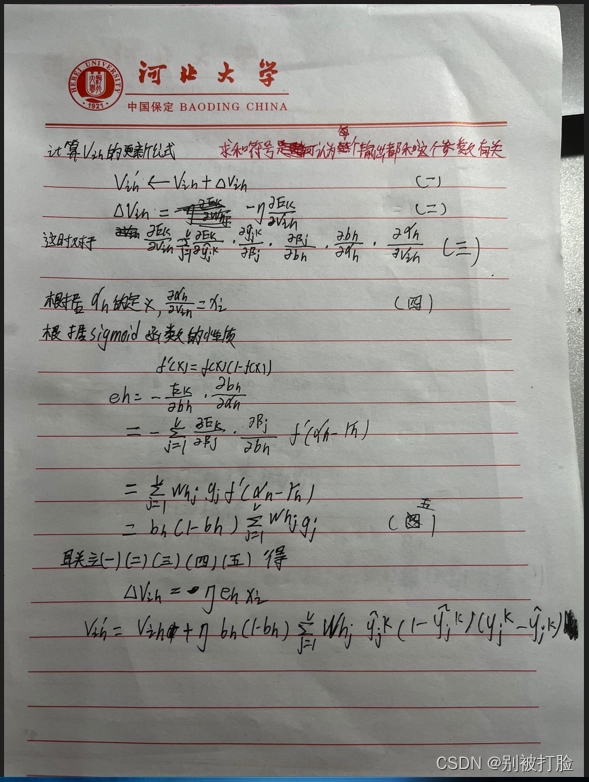 HEBEI UNIVERSITY
1921
河北大学
中国保定 BAODING CHINA
计算Vih的更新公式 求和符号是 可认为每个输出都和这个参数有关
Vih' ← Vih + ΔVih (一)
ΔVih = -η ∂Ek/∂Vih (二)
这时对于 ∂Ek/∂Vih = Σ_{j=1}^{l} ∂Ek/∂ŷj^k · ∂ŷj^k/∂βj · ∂βj/∂bh · ∂bh/∂αh · ∂αh/∂Vih (三)
根据αh的定义, ∂αh/∂Vih = xi (四)
根据sigmoid函数的性质
f'(x) = f(x)(1-f(x))
eh = - Ek/∂bh · ∂bh/∂αh
= - Σ_{j=1}^{l} ∂Ek/∂βj · ∂βj/∂bh f'(αh-γh)
= Σ_{j=1}^{l} Whj gj f'(αh-γh)
= bh(1-bh) Σ_{j=1}^{l} Whj gj (五)
联立(一)(二)(三)(四)(五)得
ΔVih = η eh xi
Vih' = Vih + η bh(1-bh) Σ_{j=1}^{l} Whj ŷj^k (1-ŷj^k)(yj^k-ŷj^k)
CSDN @别被打脸